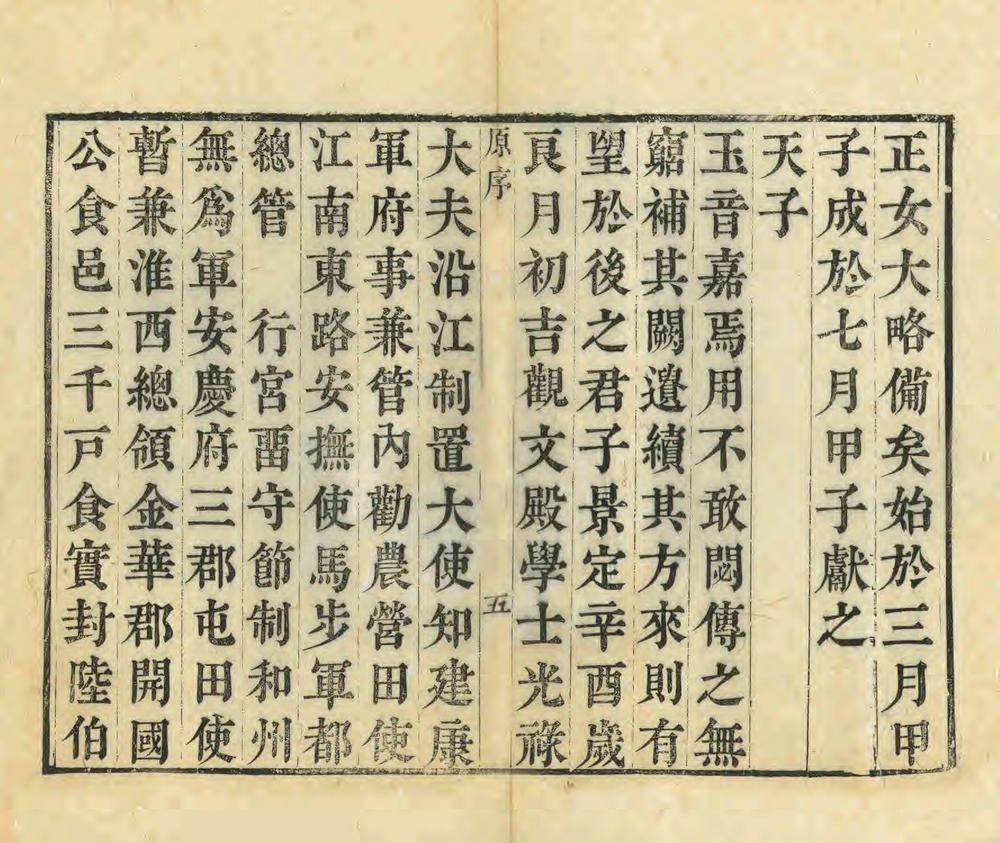 正女大略備矣始於三月甲
子成於七月甲子獻之
天子
玉音嘉焉用不敢閟傳之無
窮補其闕遺續其方來則有
望於後之君子景定辛酉歲
良月初吉觀文殿學士光祿
原序
五
大夫沿江制置大使知建康
軍府事兼管內勸農營田使
江南東路安撫使馬步軍都
總管　行宮畱守節制和州
無爲軍安慶府三郡屯田使
暫兼淮西總領金華郡開國
公食邑三千戸食實封陸伯